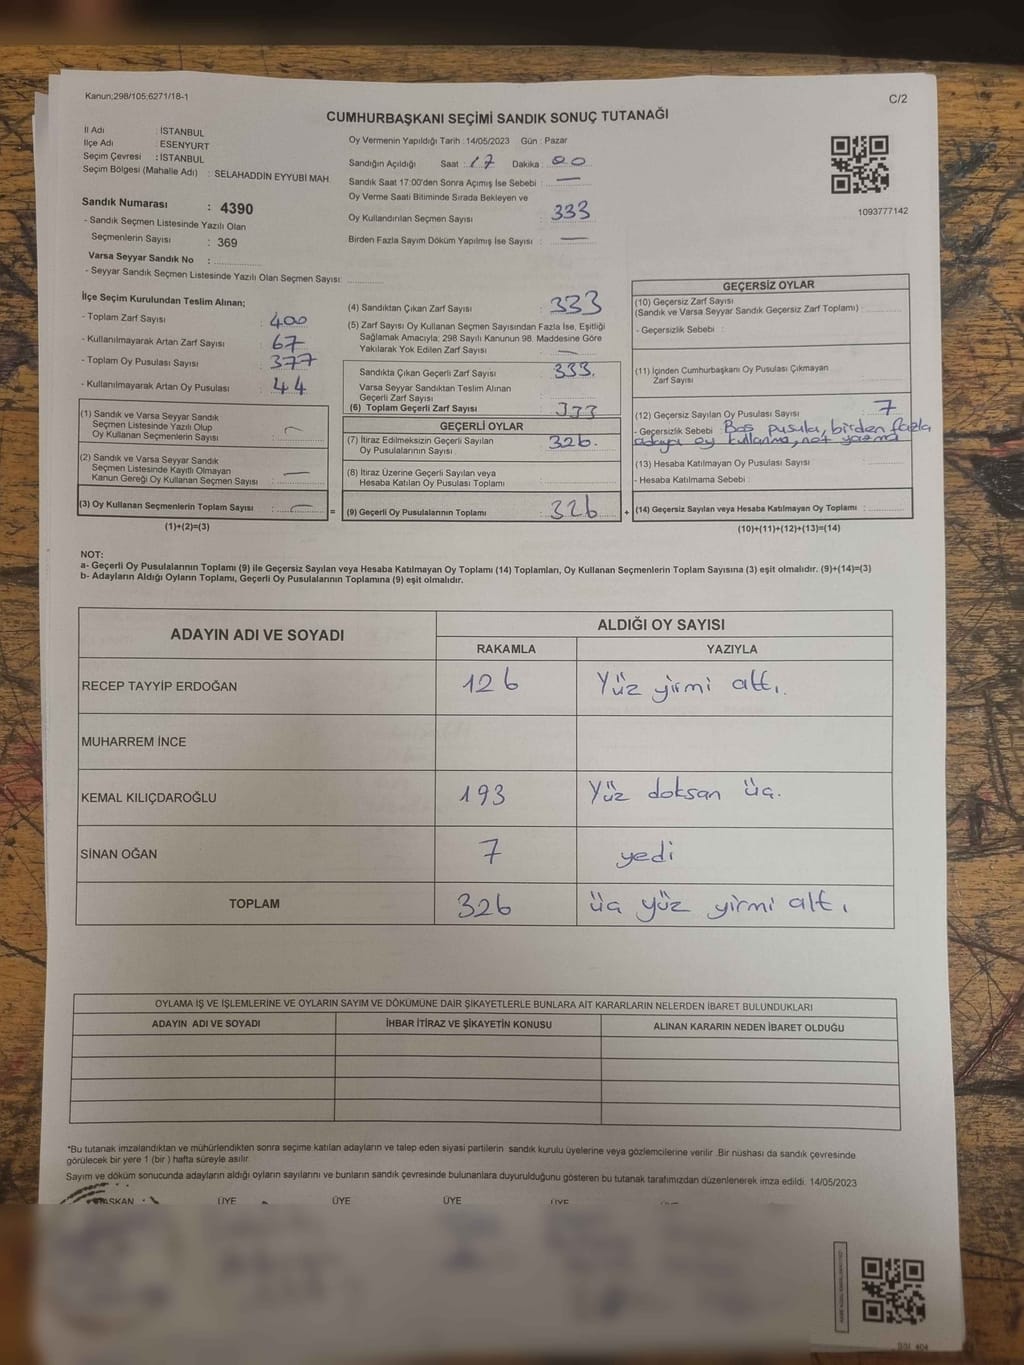 Kanun;298/105;6271/18-1
C/2
CUMHURBAŞKANI SEÇİMİ SANDIK SONUÇ TUTANAĞI
İl Adı : İSTANBUL
İlçe Adı : ESENYURT
Seçim Çevresi : İSTANBUL
Seçim Bölgesi (Mahalle Adı) : SELAHADDİN EYYUBİ MAH.
Sandık Numarası : 4390
- Sandık Seçmen Listesinde Yazılı Olan
Seçmenlerin Sayısı : 369
Varsa Seyyar Sandık No :
- Seyyar Sandık Seçmen Listesinde Yazılı Olan Seçmen Sayısı:
Oy Vermenin Yapıldığı Tarih : 14/05/2023 Gün : Pazar
Sandığın Açıldığı Saat : 17 Dakika : 00
Sandık Saat 17:00'den Sonra Açımış İse Sebebi : —
Oy Verme Saati Bitiminde Sırada Bekleyen ve
Oy Kullandırılan Seçmen Sayısı : 333
Birden Fazla Sayım Döküm Yapılmış İse Sayısı : —
1093777142
İlçe Seçim Kurulundan Teslim Alınan;
- Toplam Zarf Sayısı : 400
- Kullanılmayarak Artan Zarf Sayısı : 67
- Toplam Oy Pusulası Sayısı : 377
- Kullanılmayarak Artan Oy Pusulası : 44
(1) Sandık ve Varsa Seyyar Sandık
Seçmen Listesinde Yazılı Olup
Oy Kullanan Seçmenlerin Sayısı : —
(2) Sandık ve Varsa Seyyar Sandık
Seçmen Listesinde Kayıtlı Olmayan
Kanun Gereği Oy Kullanan Seçmen Sayısı : —
(3) Oy Kullanan Seçmenlerin Toplam Sayısı : — =
(1)+(2)=(3)
(4) Sandıktan Çıkan Zarf Sayısı : 333
(5) Zarf Sayısı Oy Kullanan Seçmen Sayısından Fazla İse, Eşitliği
Sağlamak Amacıyla; 298 Sayılı Kanunun 98. Maddesine Göre
Yakılarak Yok Edilen Zarf Sayısı : —
Sandıkta Çıkan Geçerli Zarf Sayısı : 333.
Varsa Seyyar Sandıktan Teslim Alınan
Geçerli Zarf Sayısı :
(6) Toplam Geçerli Zarf Sayısı : 333
GEÇERLİ OYLAR
(7) İtiraz Edilmeksizin Geçerli Sayılan
Oy Pusulalarının Sayısı : 326.
(8) İtiraz Üzerine Geçerli Sayılan veya
Hesaba Katılan Oy Pusulası Toplamı :
(9) Geçerli Oy Pusulalarının Toplamı : 326 +
GEÇERSİZ OYLAR
(10) Geçersiz Zarf Sayısı
(Sandık ve Varsa Seyyar Sandık Geçersiz Zarf Toplamı) :
- Geçersizlik Sebebi :
(11) İçinden Cumhurbaşkanı Oy Pusulası Çıkmayan
Zarf Sayısı :
(12) Geçersiz Sayılan Oy Pusulası Sayısı : 7
- Geçersizlik Sebebi : Boş pusula, birden fazla
adaya oy kullanma, not yazma
(13) Hesaba Katılmayan Oy Pusulası Sayısı :
- Hesaba Katılmama Sebebi :
(14) Geçersiz Sayılan veya Hesaba Katılmayan Oy Toplamı :
(10)+(11)+(12)+(13)=(14)
NOT:
a- Geçerli Oy Pusulalarının Toplamı (9) ile Geçersiz Sayılan veya Hesaba Katılmayan Oy Toplamı (14) Toplamları, Oy Kullanan Seçmenlerin Toplam Sayısına (3) eşit olmalıdır. (9)+(14)=(3)
b- Adayların Aldığı Oyların Toplamı, Geçerli Oy Pusulalarının Toplamına (9) eşit olmalıdır.
ADAYIN ADI VE SOYADI
ALDIĞI OY SAYISI
RAKAMLA YAZIYLA
RECEP TAYYİP ERDOĞAN 126 Yüz yirmi altı.
MUHARREM İNCE
KEMAL KILIÇDAROĞLU 193 Yüz doksan üç.
SİNAN OĞAN 7 yedi
TOPLAM 326 üç yüz yirmi altı
OYLAMA İŞ VE İŞLEMLERİNE VE OYLARIN SAYIM VE DÖKÜMÜNE DAİR ŞİKAYETLERLE BUNLARA AİT KARARLARIN NELERDEN İBARET BULUNDUKLARI
ADAYIN ADI VE SOYADI İHBAR İTİRAZ VE ŞİKAYETİN KONUSU ALINAN KARARIN NEDEN İBARET OLDUĞU
*Bu tutanak imzalandıktan ve mühürlendikten sonra seçime katılan adayların ve talep eden siyasi partilerin sandık kurulu üyelerine veya gözlemcilerine verilir .Bir nüshası da sandık çevresinde
görülecek bir yere 1 (bir ) hafta süreyle asılır.
Sayım ve döküm sonucunda adayların aldığı oyların sayılarını ve bunların sandık çevresinde bulunanlara duyurulduğunu gösteren bu tutanak tarafımızdan düzenlenerek imza edildi. 14/05/2023
BAŞKAN ÜYE ÜYE ÜYE ÜYE